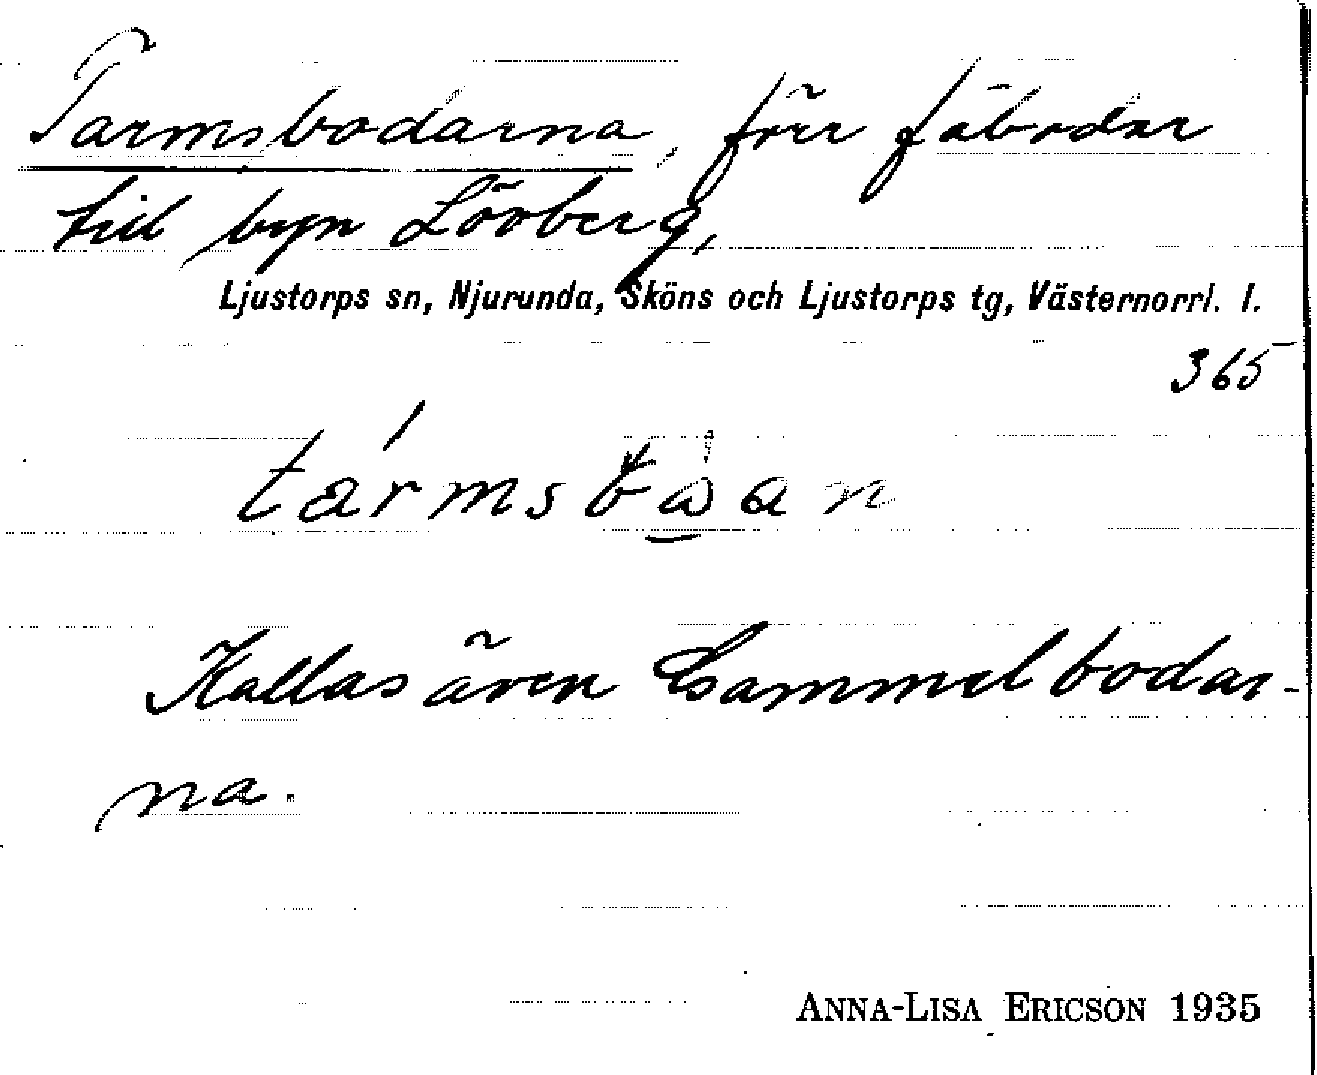 Tarmsbodarna, förr fäbodar
till byn Lövberg,
Ljustorps sn, Njurunda, Sköns och Ljustorps tg, Västernorrl. l.
365
Kallas även Gammelbodar-
na.
ANNA-LISA ERICSON 1935